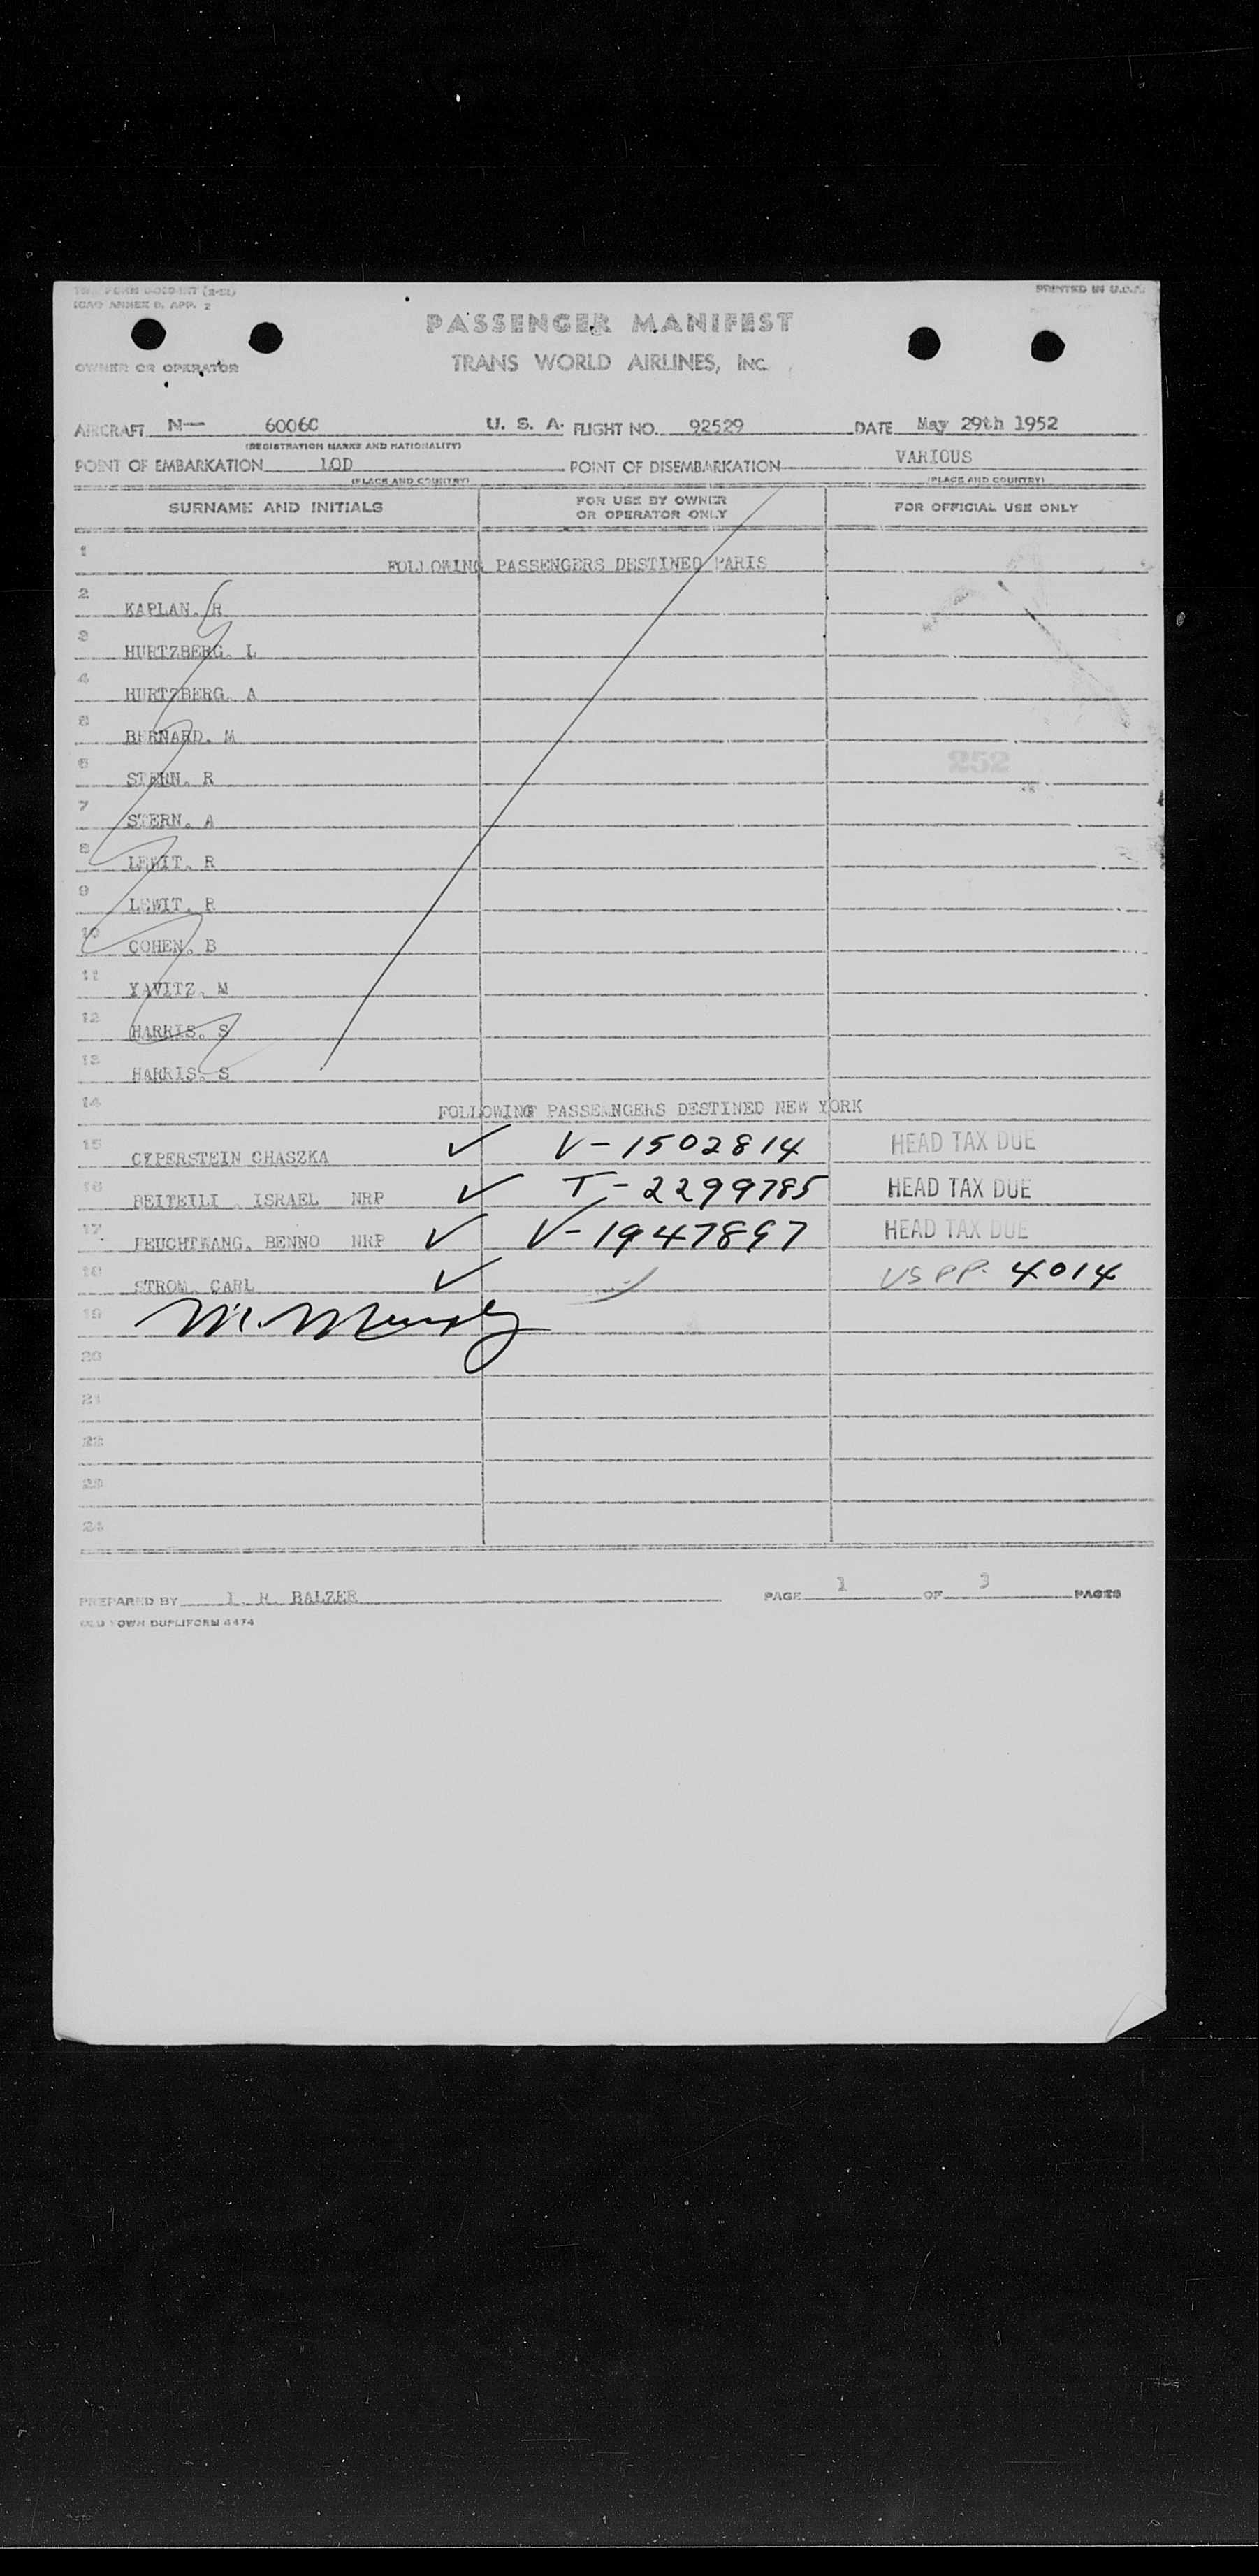 TWA FORM (2-52)
ICAO ANNEX 9, APP. 2
PRINTED IN U.S.A.
PASSENGER MANIFEST
OWNER OR OPERATOR TRANS WORLD AIRLINES, INC.
AIRCRAFT N— 6006C U. S. A. FLIGHT NO. 92529 DATE May 29th 1952
(REGISTRATION MARKS AND NATIONALITY)
POINT OF EMBARKATION LOD POINT OF DISEMBARKATION VARIOUS
(PLACE AND COUNTRY) (PLACE AND COUNTRY)
SURNAME AND INITIALS FOR USE BY OWNER OR OPERATOR ONLY FOR OFFICIAL USE ONLY
1 FOLLOWING PASSENGERS DESTINED PARIS
2 KAPLAN. R
3 HURTZBERG. L
4 HURTZBERG. A
5 BERNARD. M
252
6 STERN. R
7 STERN. A
8 LEWIT. R
9 LEWIT. R
10 COHEN. B
11 YAVITZ. M
12 HARRIS. S
13 HARRIS. S
14 FOLLOWING PASSEANGERS DESTINED NEW YORK
15 CYPERSTEIN CHASZKA ✓ V-1502814 HEAD TAX DUE
16 BEITEILI . ISRAEL NRP ✓ T-2299785 HEAD TAX DUE
17 FEUCHTWANG. BENNO NRP ✓ V-1947897 HEAD TAX DUE
18 STROM. CARL ✓ US PP. 4014
19 M. Murphy
20
21
22
23
24
PREPARED BY I. R. BALZER PAGE 1 OF 3 PAGES
OLD TOWN DUPLIFORM 4474